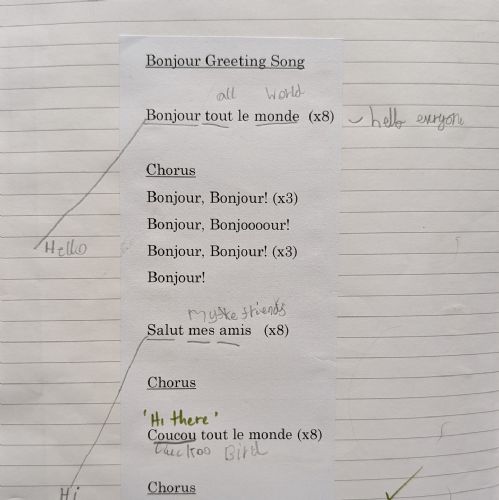 Bonjour Greeting Song
all world
Bonjour tout le monde (x8) hello everyone
Chorus
Bonjour, Bonjour! (x3)
Bonjour, Bonjoooour!
Hello
Bonjour, Bonjour! (x3)
Bonjour!
friends
Salut mes amis (x8)
Chorus
'Hi there'
Coucou tout le monde (x8)
Cuckoo Bird
Chorus
Hi